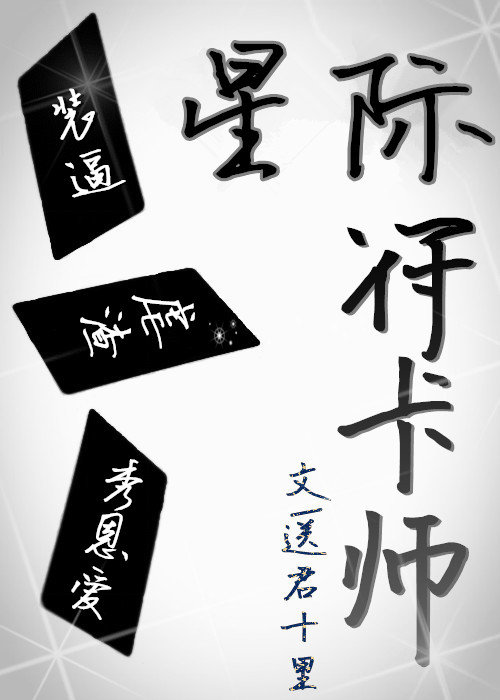 星际
卡师
装逼
虐渣
秀恩爱
文
送君十里